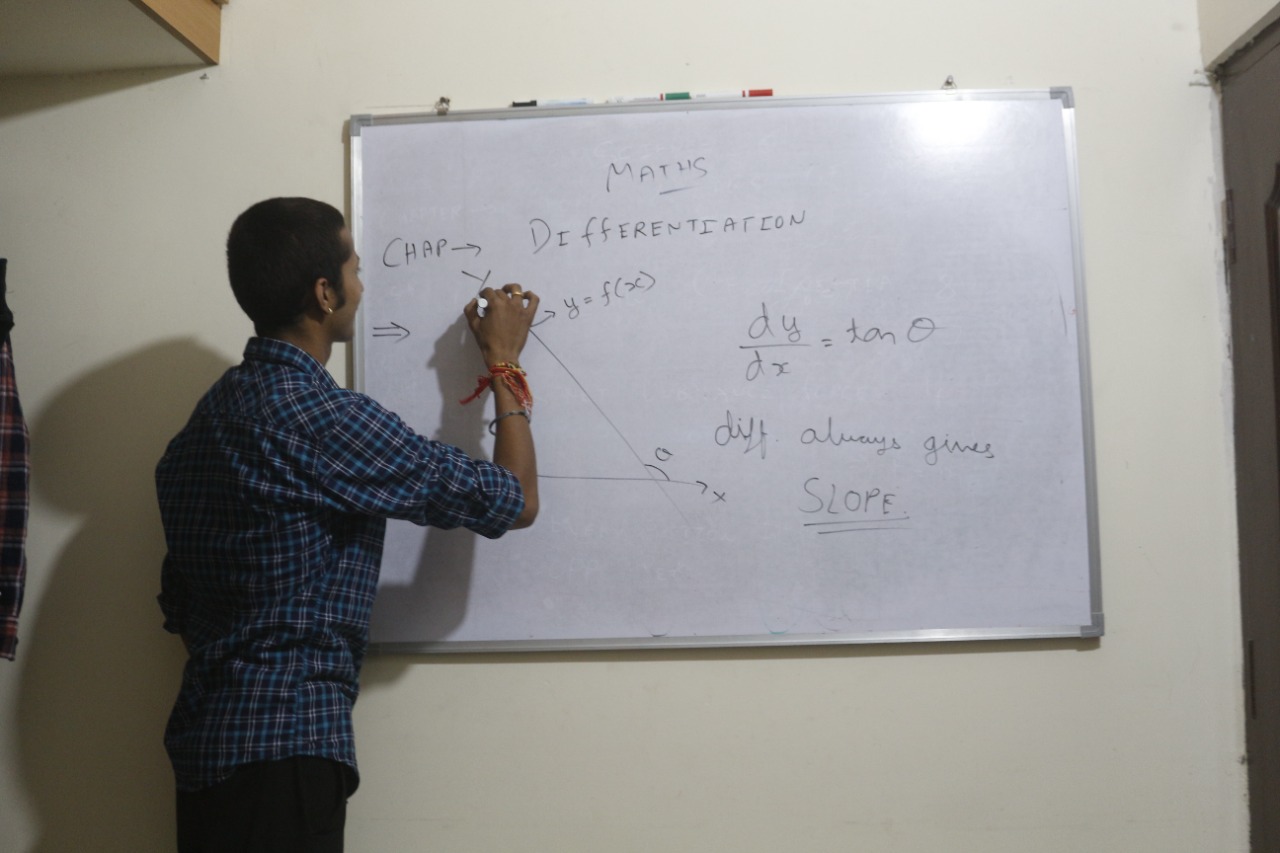 MATHS
CHAP → DIffERENTIATION
Y
⇒
y = f(x)
dy/dx = tan θ
θ
diff. always gives
x
SLOPE.